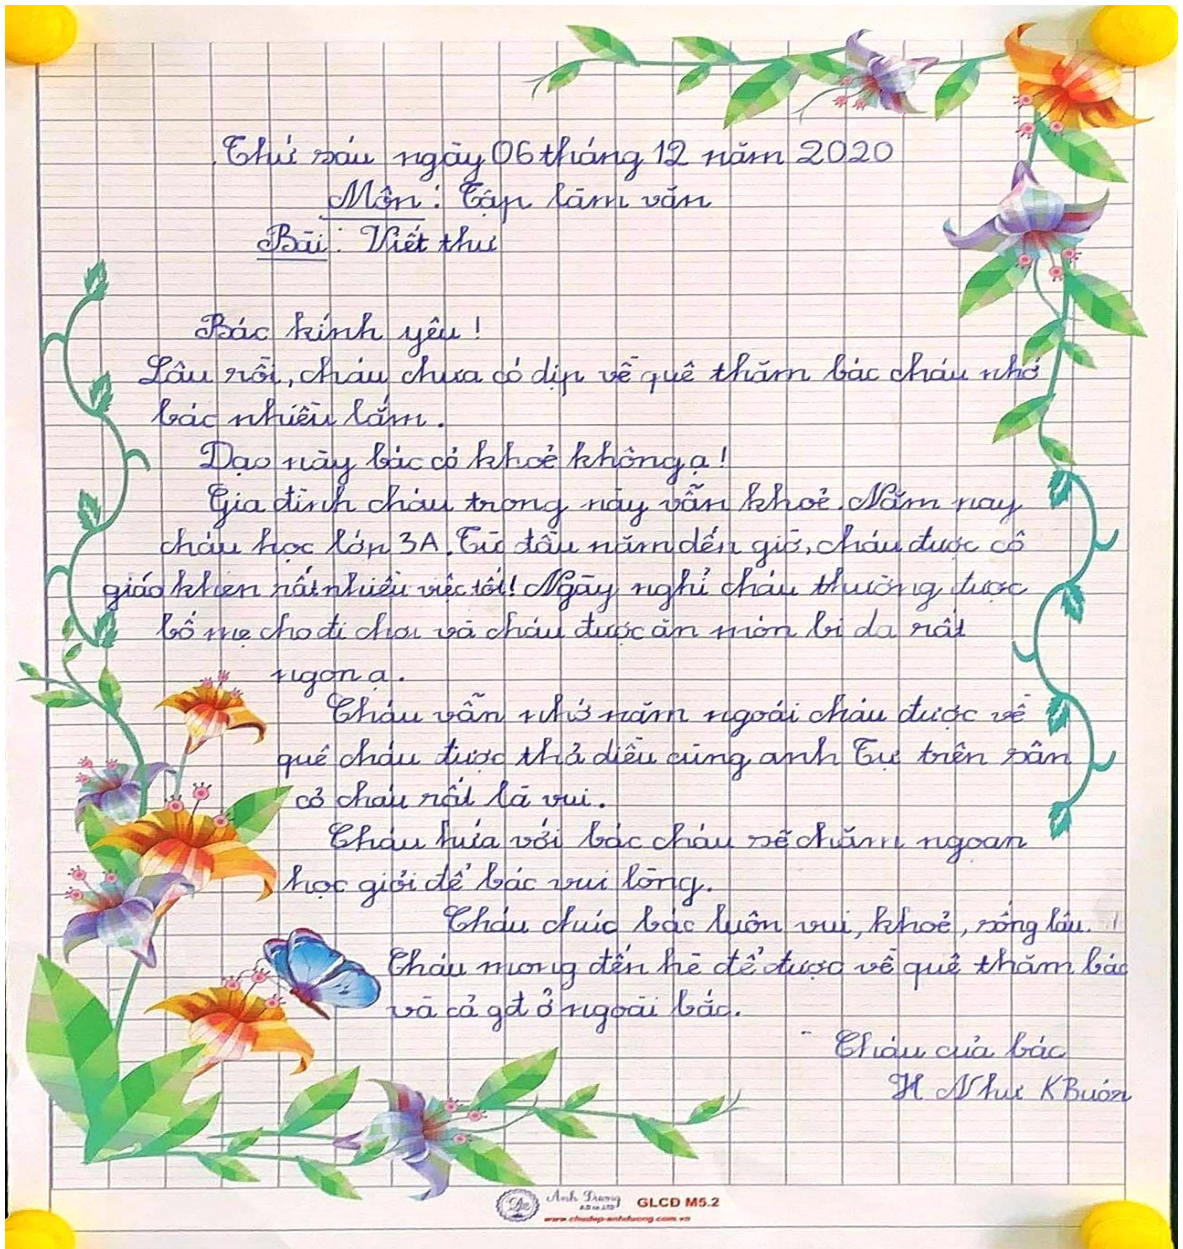 Thứ sáu ngày 06 tháng 12 năm 2020
Môn: Tập làm văn
Bài: Viết thư
Bác kính yêu!
Lâu rồi, cháu chưa có dịp về quê thăm bác cháu nhớ
bác nhiều lắm.
Dạo này bác có khoẻ không ạ!
Gia đình cháu trong này vẫn khoẻ. Năm nay
cháu học lớp 3A. Từ đầu năm đến giờ, cháu được cô
giáo khen rất nhiều việc tốt! Ngày nghỉ cháu thường được
bố mẹ cho đi chơi và cháu được ăn món bi da rất
ngon ạ.
Cháu vẫn nhớ năm ngoái cháu được về
quê cháu được thả diều cùng anh Tự trên sân
cỏ cháu rất là vui.
Cháu hứa với bác cháu sẽ chăm ngoan
học giỏi để bác vui lòng.
Cháu chúc bác luôn vui, khoẻ, sống lâu.
Cháu mong đến hè để được về quê thăm bác
và cả gđ ở ngoài bắc.
Cháu của bác
H Như KBuôr
Anh Dương
GLCD M5.2
www.chudep-anhduong.com.vn